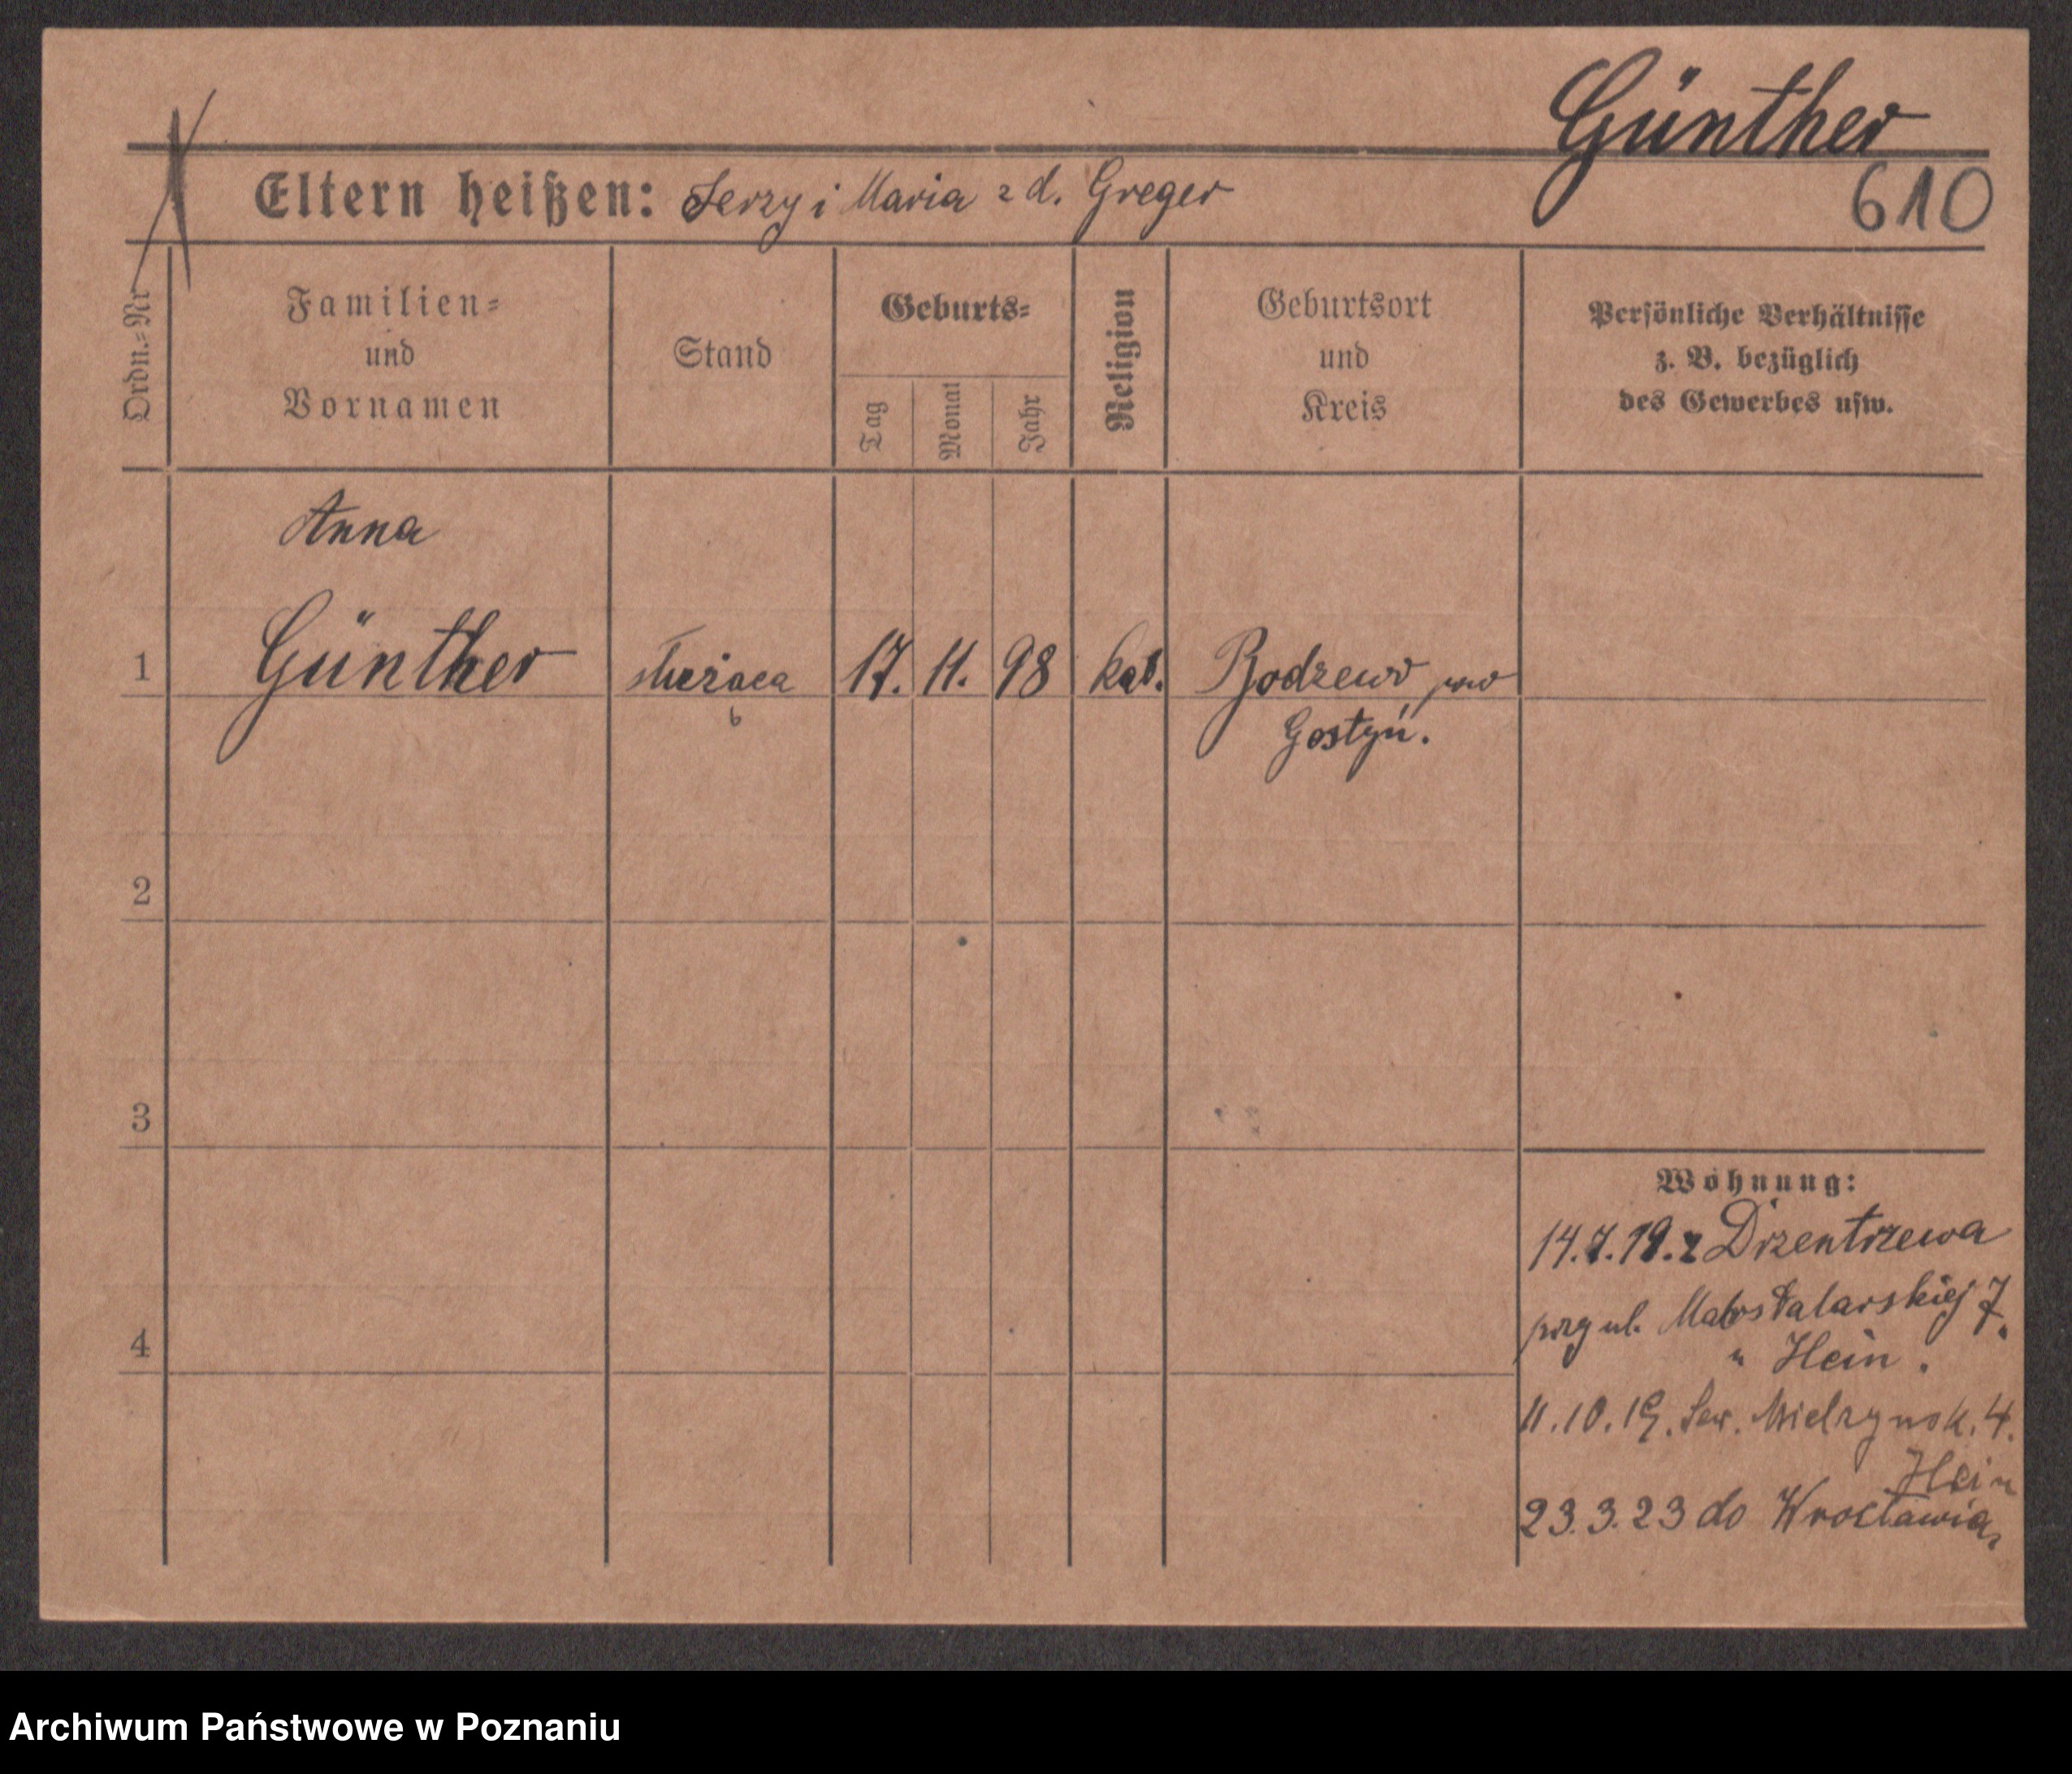 Günther
610
Eltern heißen: Jerzy i Maria z d. Greger
Ordn.=Nr
Familien=
und
Vornamen
Stand
Geburts=
Tag
Monat
Jahr
Religion
Geburtsort
und
Kreis
Persönliche Verhältnisse
z. B. bezüglich
des Gewerbes usw.
Anna
1 Günther służąca 17. 11. 98 kat. Bodzewo pow
Gostyń.
2
3
4
Wohnung:
14.7.19. z Drzentrzewa
przy ul. Masztalarskiej 7.
" Hein.
11.10.19. Sew. Mielzynsk. 4.
Hein
23.3.23 do Wrocławia
Archiwum Państwowe w Poznaniu